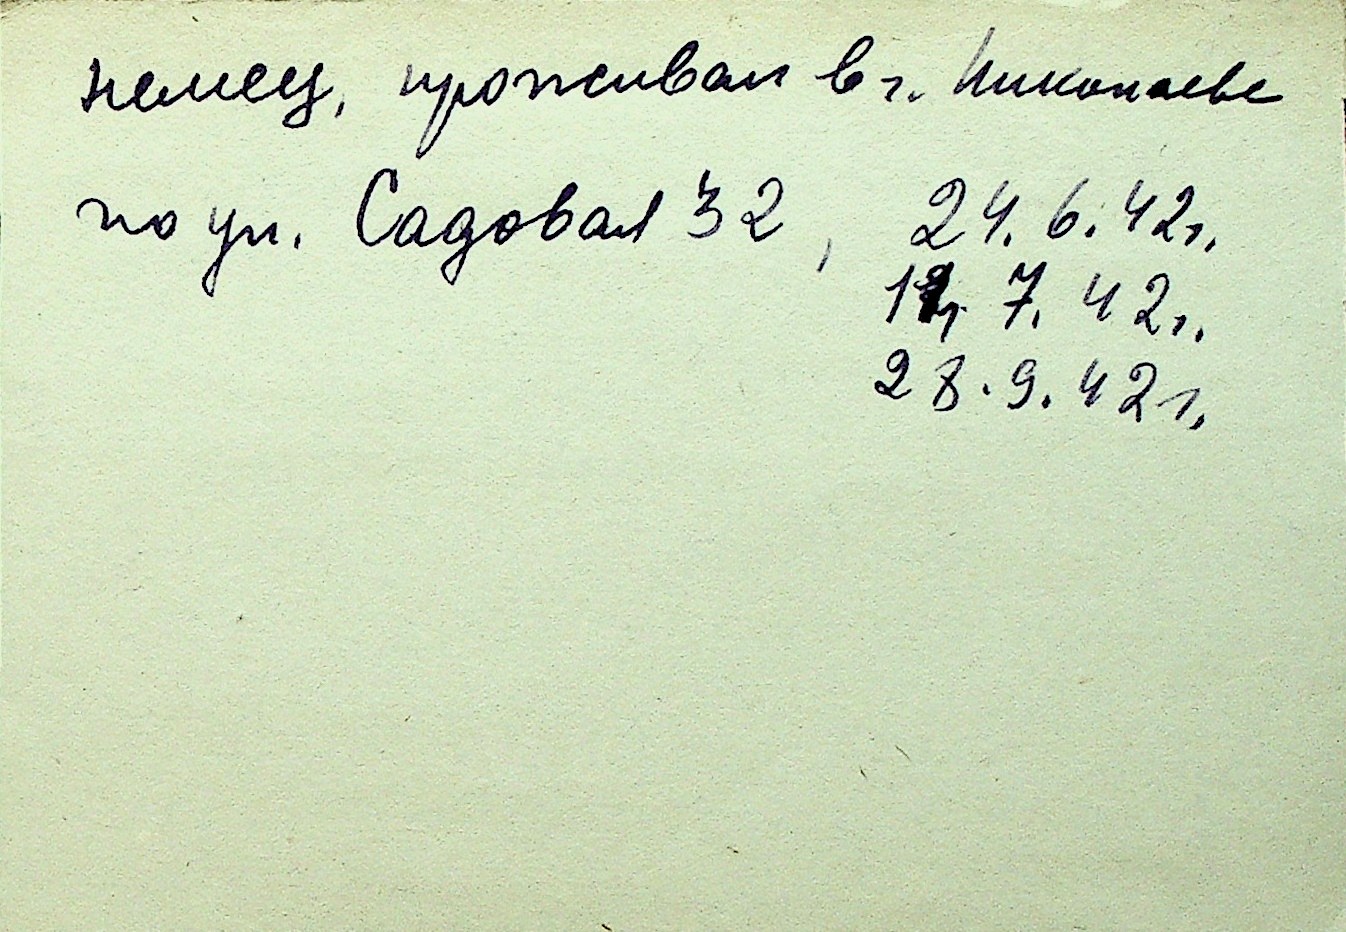 немец, проживал в г. Николаеве
по ул. Садовая 32, 24.6.42г.
7.42г.
28.9.42г.